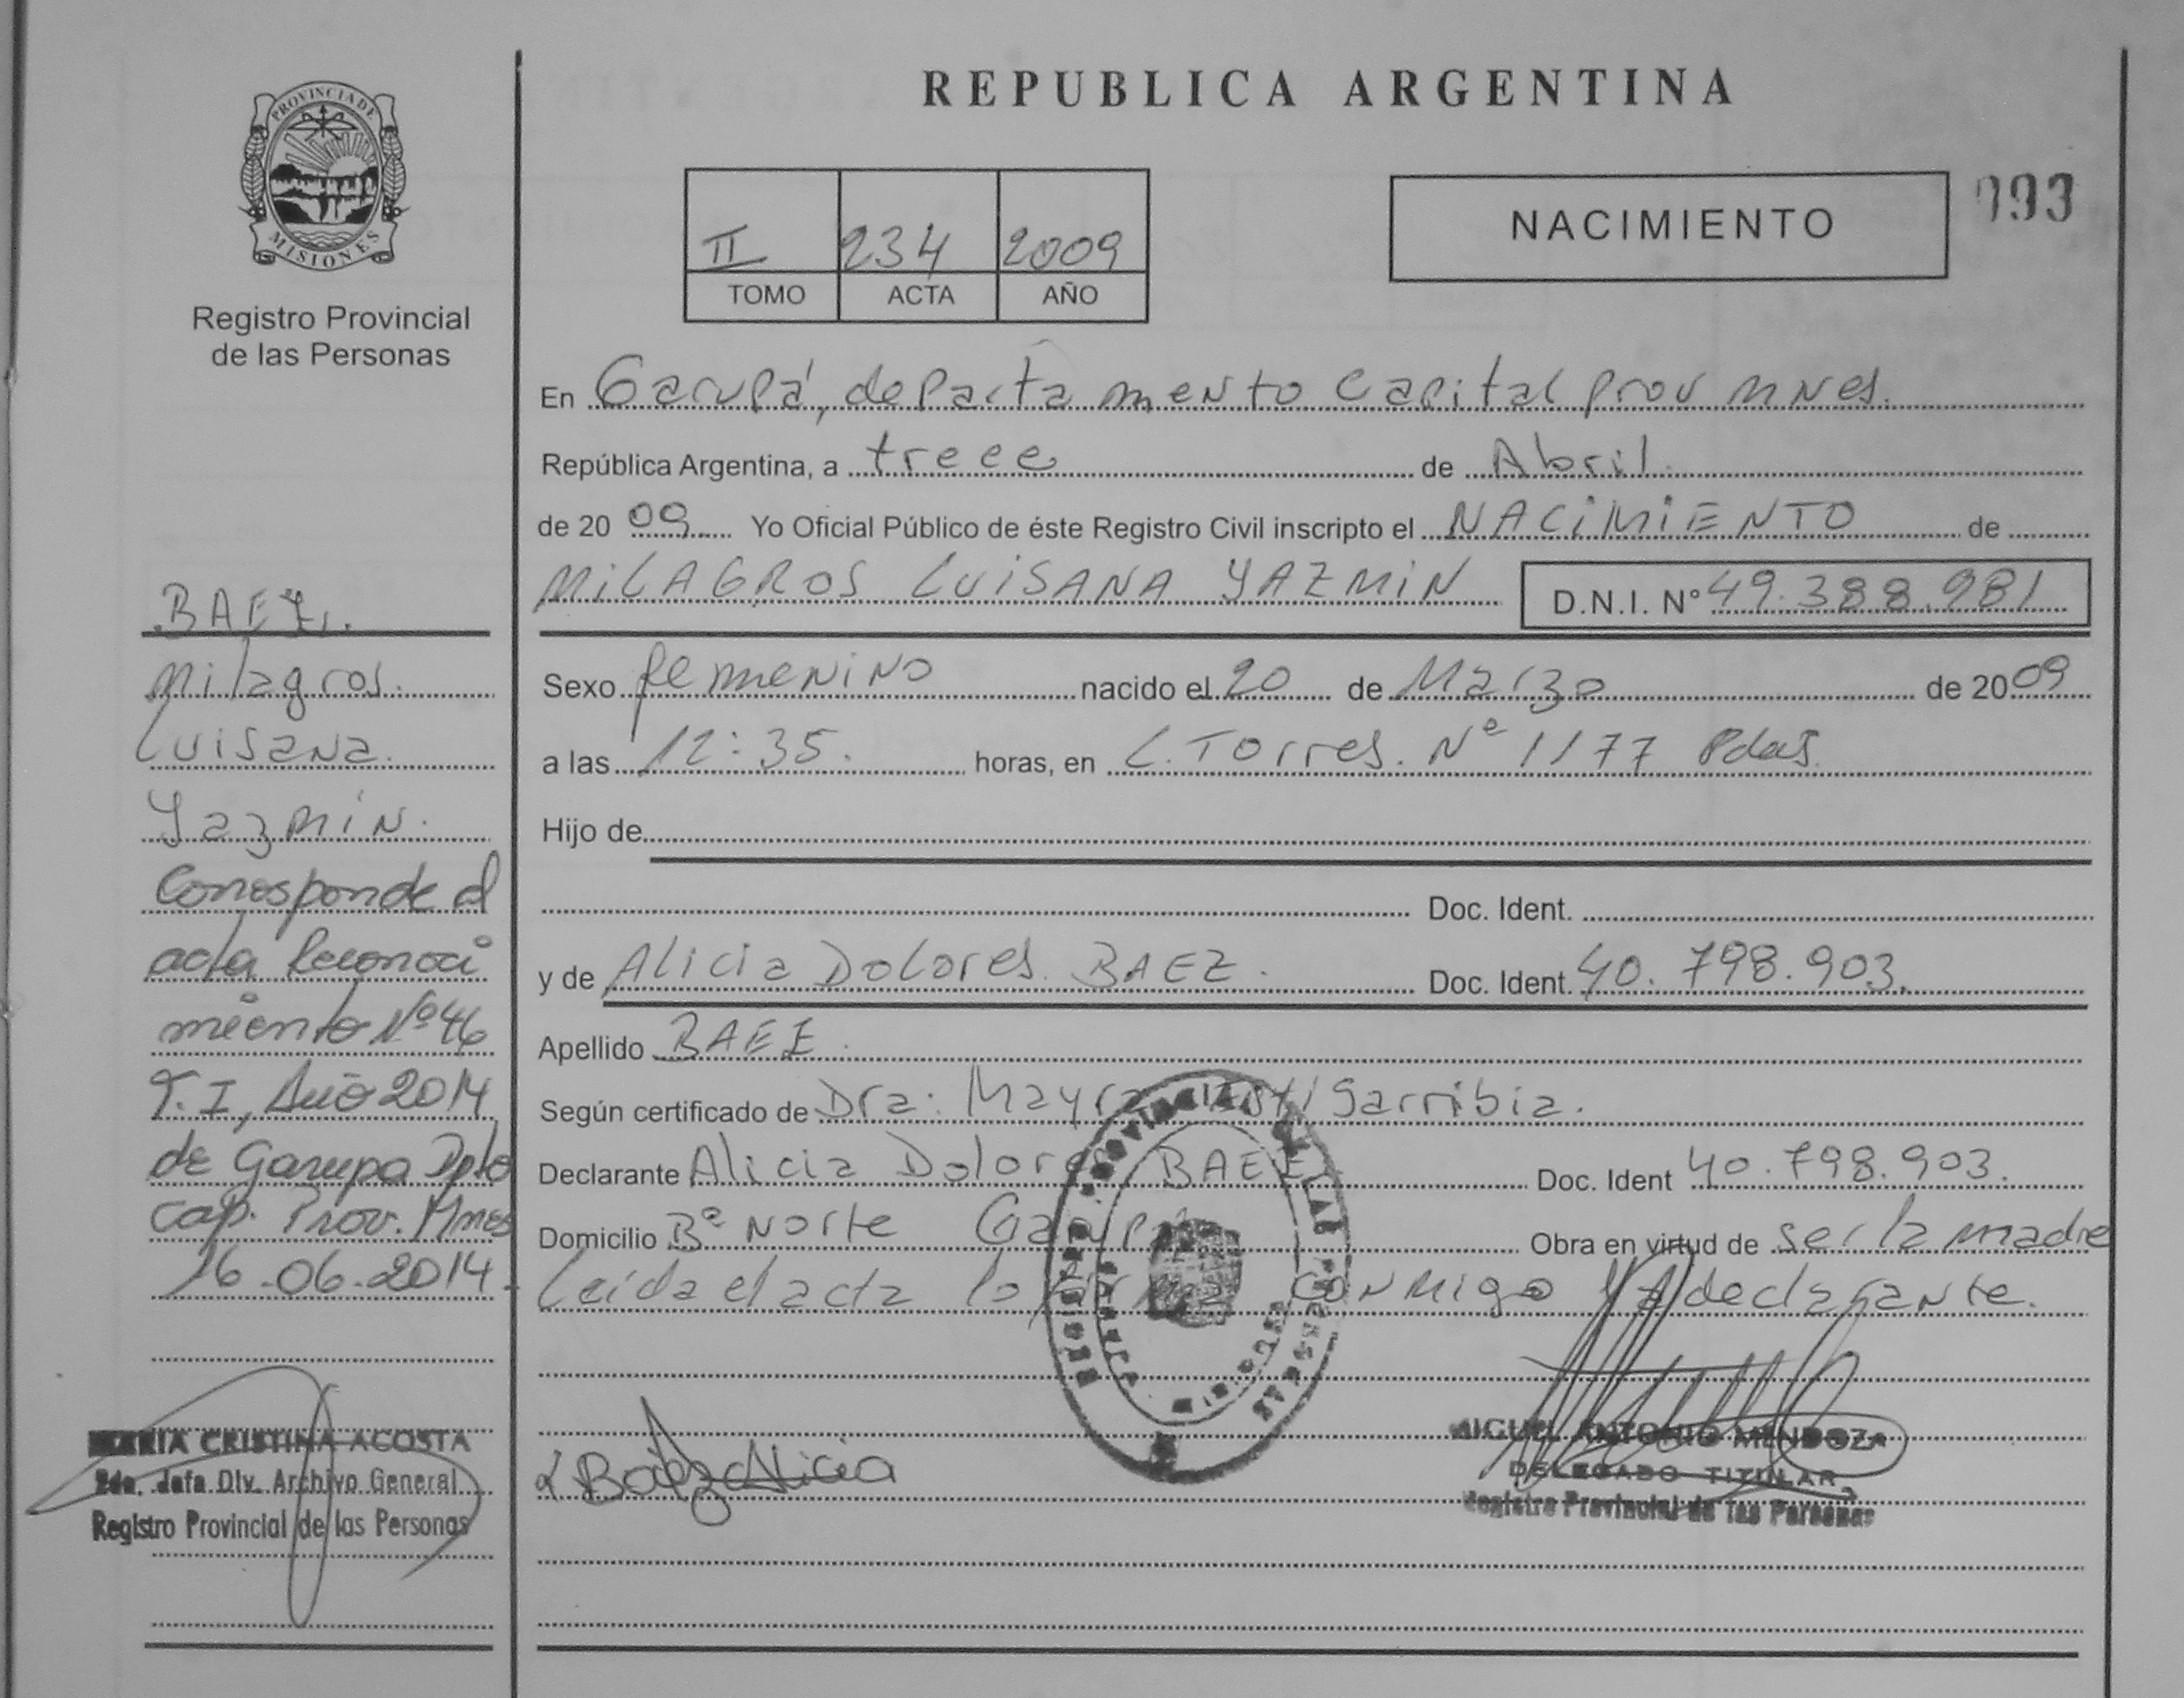 PROVINCIA DE
MISIONES
Registro Provincial
de las Personas
REPUBLICA ARGENTINA
II 234 2009
TOMO ACTA AÑO
NACIMIENTO
993
En Garupá, departamento Capital prov Mnes.
República Argentina, a trece de Abril
de 2009 Yo Oficial Público de éste Registro Civil inscripto el NACIMIENTO de
MILAGROS LUISANA YAZMIN D.N.I. Nº 49.388.981
Sexo femenino nacido el 20 de Marzo de 2009
a las 12:35. horas, en L. Torres. Nº 1177 Pdas.
Hijo de
Doc. Ident.
y de Alicia Dolores BAEZ. Doc. Ident. 40.798.903.
Apellido BAEZ.
Según certificado de Dra: Mayra Garribia.
Declarante Alicia Dolores BAEZ Doc. Ident 40.798.903.
Domicilio Bº Norte Garupá Obra en virtud de ser la madre
Leída el acta la firma conmigo la declarante.
BAEZ.
Milagros.
Luisana.
Yazmin.
Corresponde al
acta Reconoci
miento Nº 46
T. I, Año 2014
de Garupa Dpto
Cap. Prov. Mnes
16.06.2014.
MARIA CRISTINA ACOSTA
2da. Jefa Div. Archivo General
Registro Provincial de las Personas
Baez Alicia
MIGUEL ANTONIO MENDOZA
DELEGADO TITULAR
Registro Provincial de las Personas